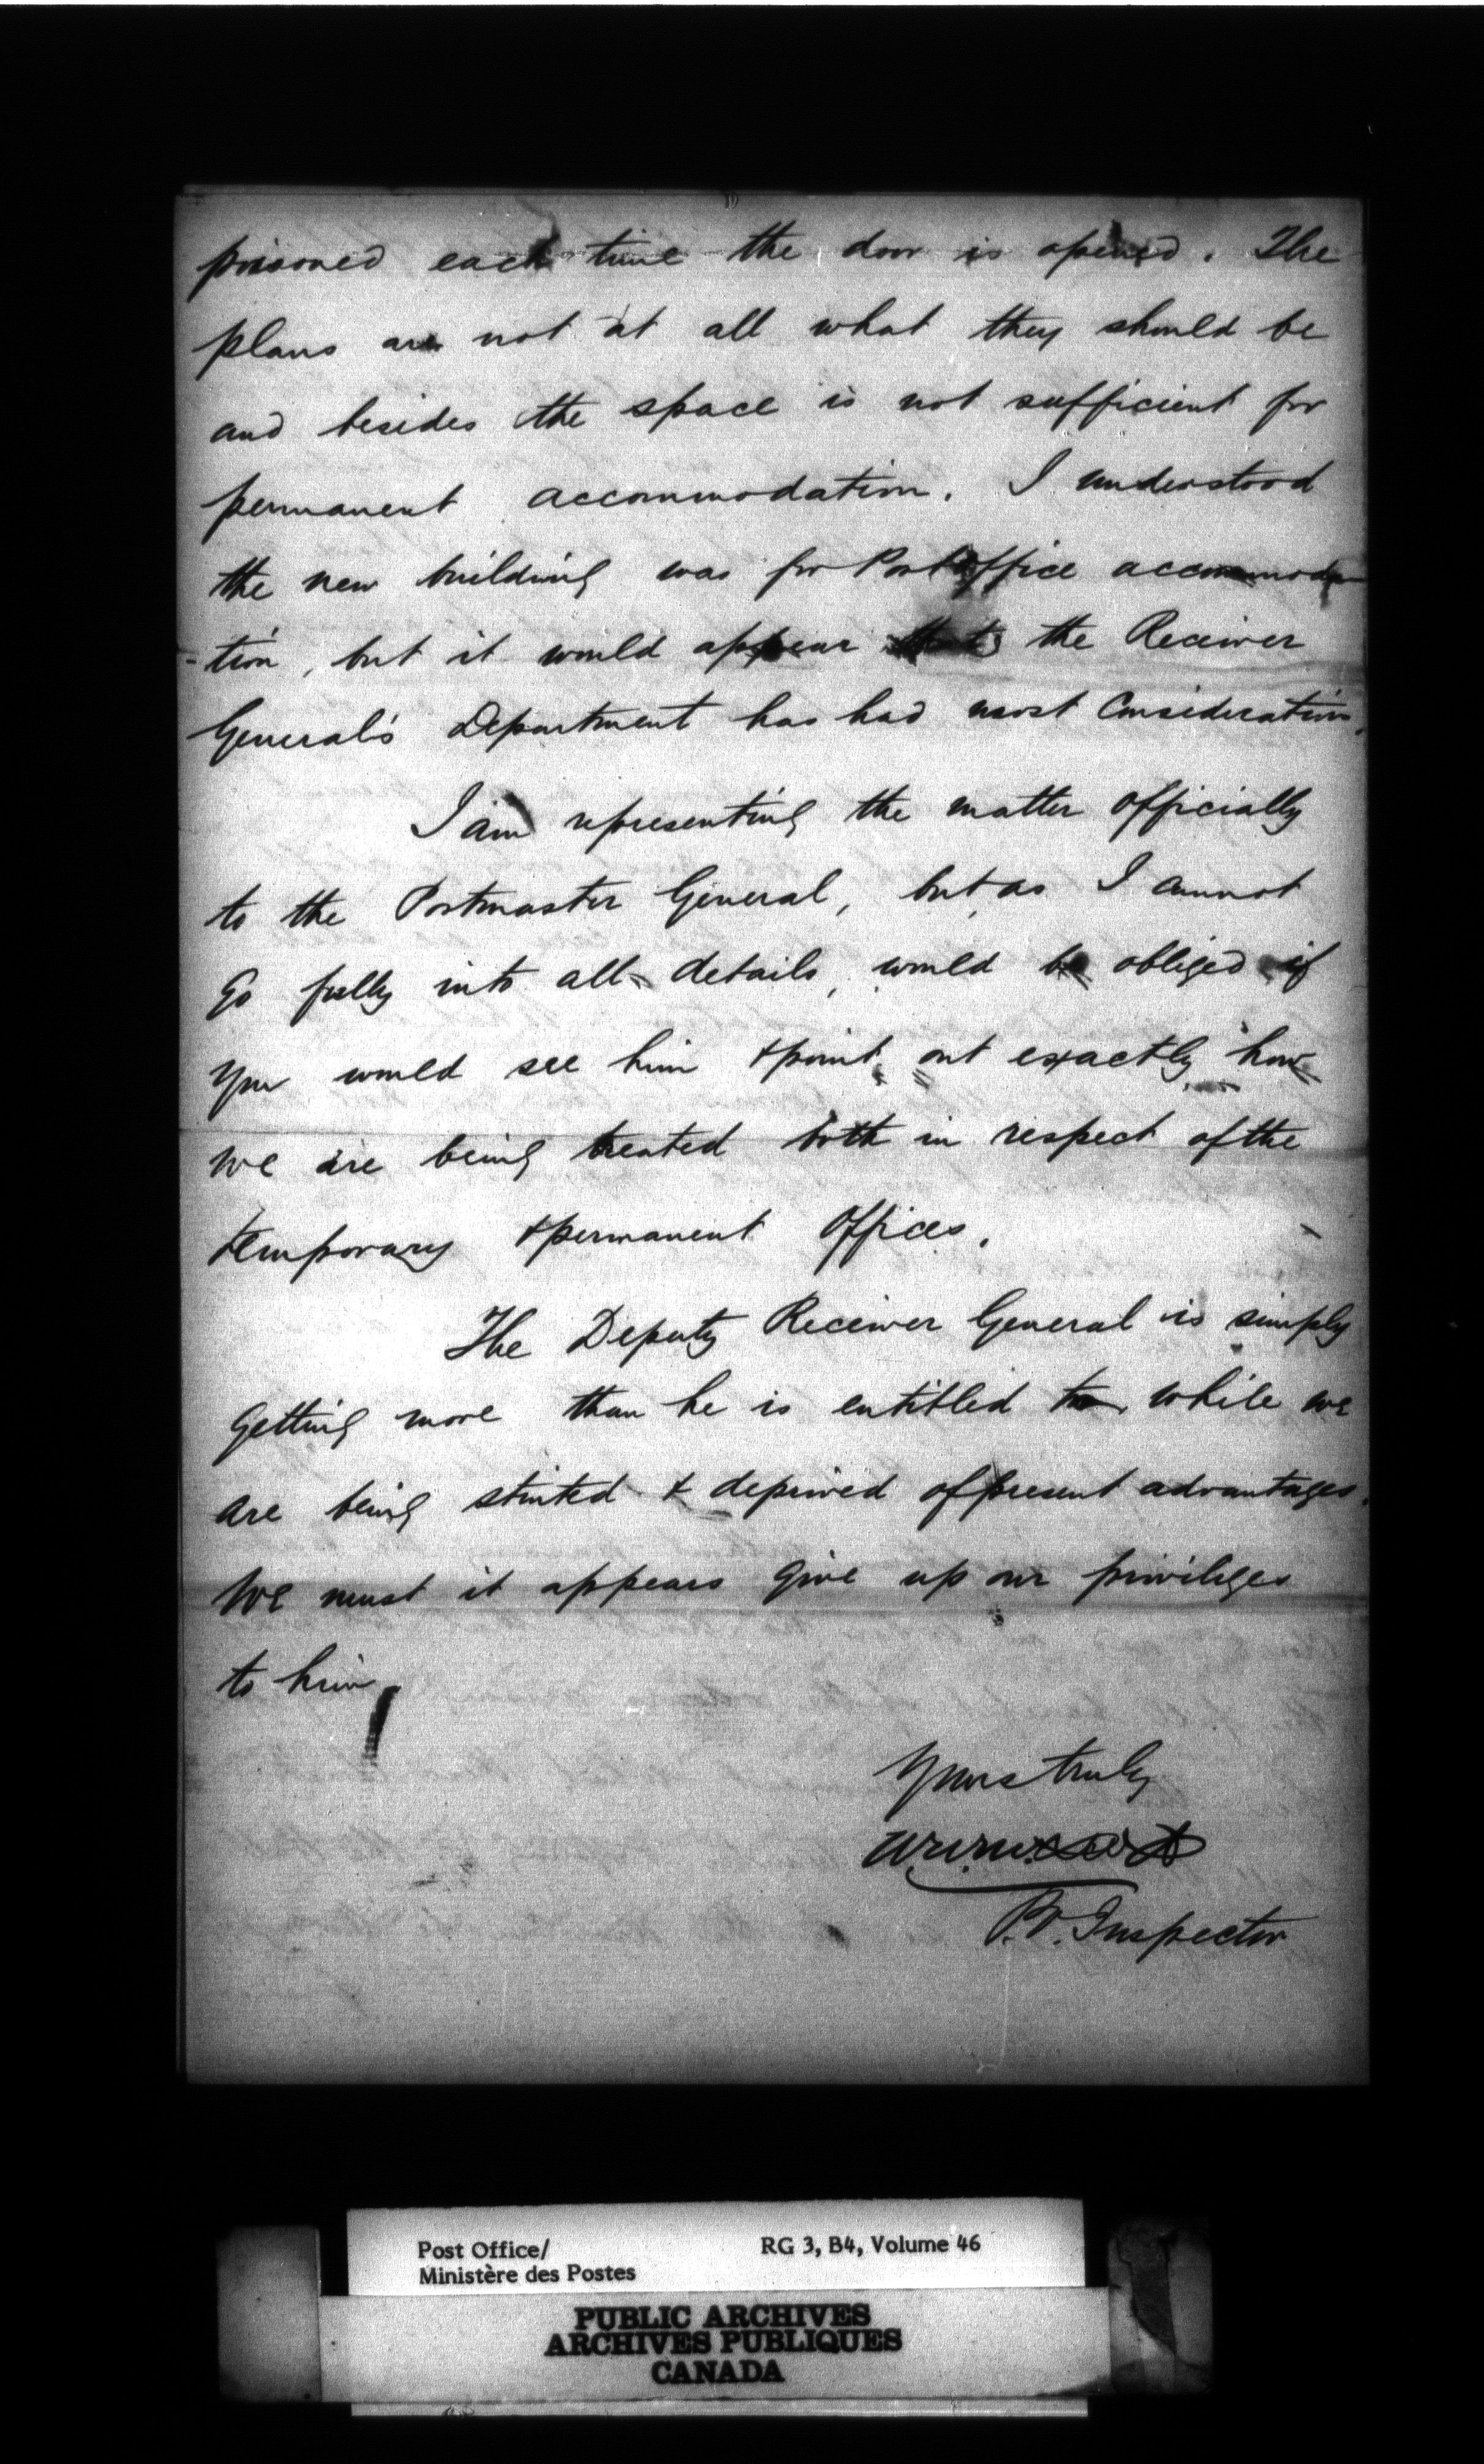 poisoned each time the door is opened. The
plans are not at all what they should be
and besides the space is not sufficient for
permanent accommodation. I understood
the new building was for Post Office accommoda
-tion, but it would appear that the Receiver
General's Department has had most Consideration.
I am representing the matter officially
to the Postmaster General, but as I cannot
go fully into all details, would be obliged if
you would see him & point out exactly how
we are being treated both in respect of the
temporary & permanent Offices.
The Deputy Receiver General is simply
getting more than he is entitled to while we
are being stinted & deprived of present advantages.
We must it appears give up our privileges
to him
Yours truly
P.O. Inspector
Post Office/
Ministère des Postes
RG 3, B4, Volume 46
PUBLIC ARCHIVES
ARCHIVES PUBLIQUES
CANADA